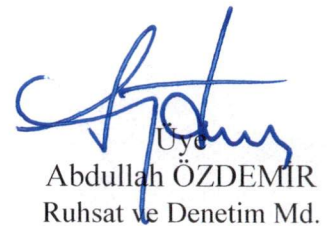 Üye
Abdullah ÖZDEMİR
Ruhsat ve Denetim Md.